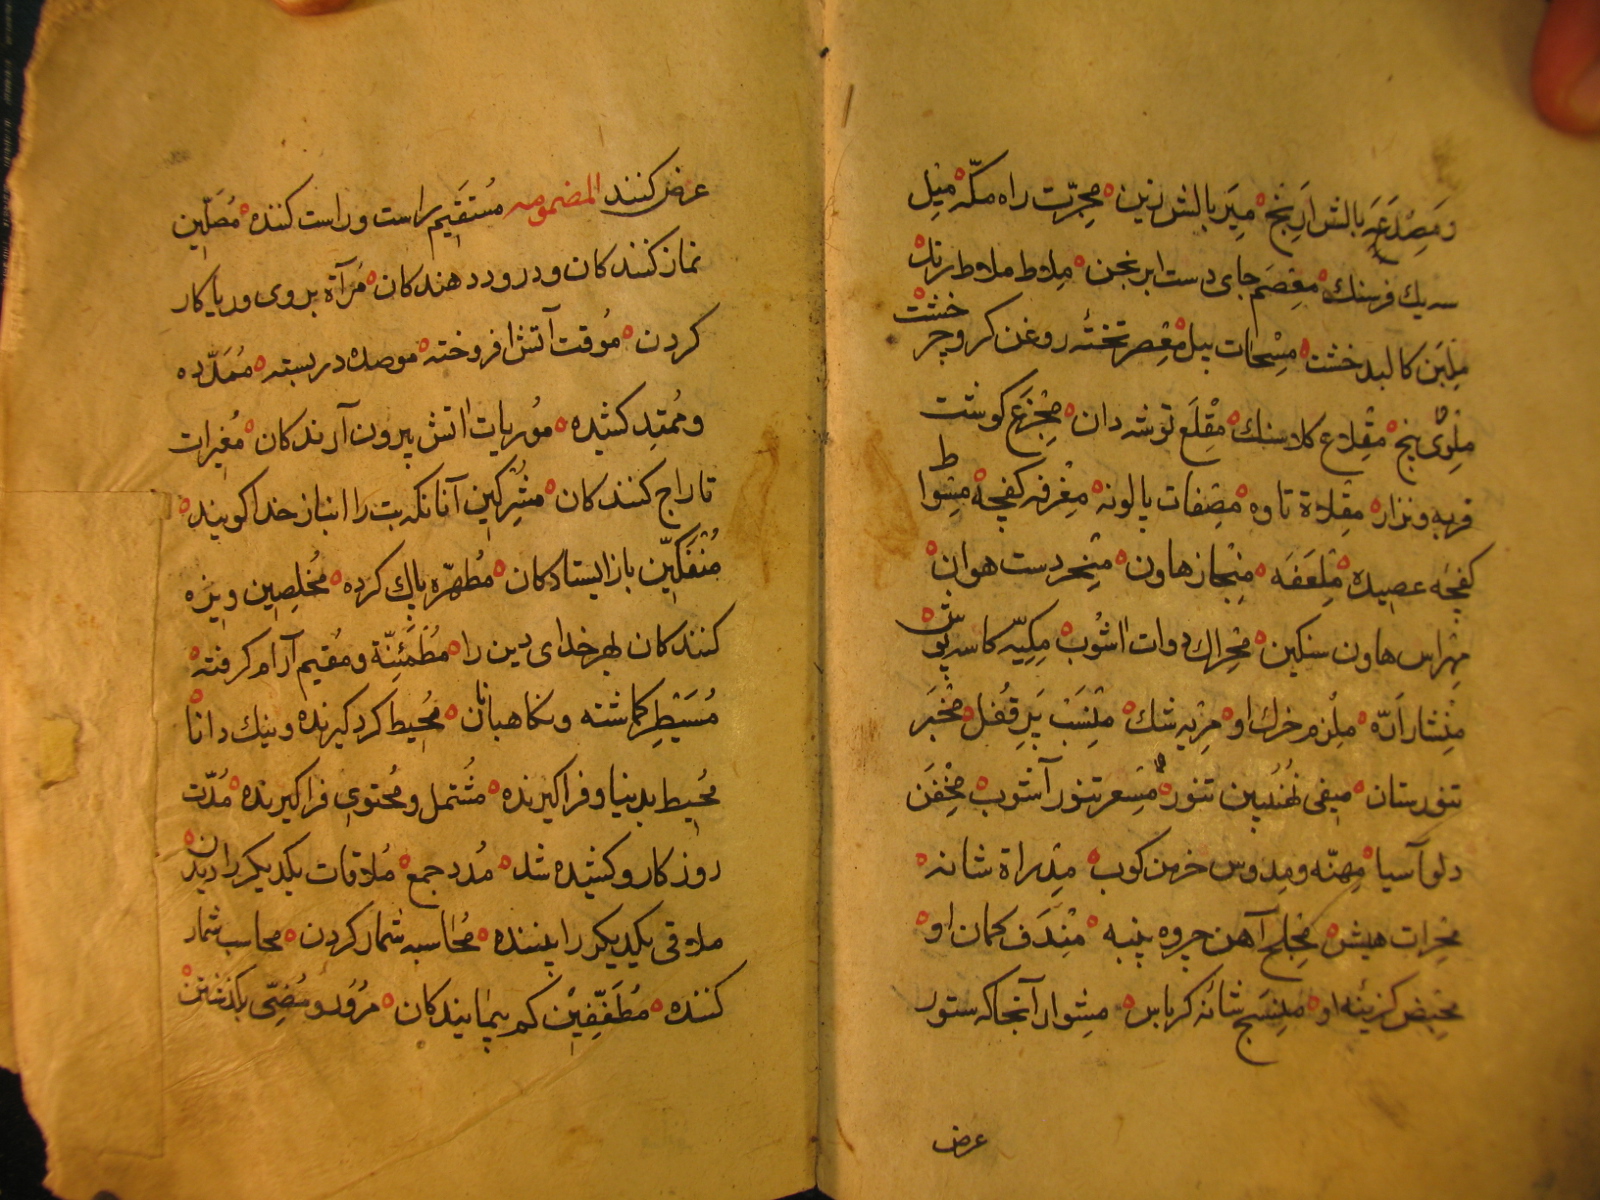 و مِصْدَغَه بالش اَرنج ه مِیَر بالش زین ه مِجرّت راه مکّه ه مِیْل
سه یك فرسنك ه مِعْصَم جای دست ابرنجن ه مِلاط ملاط رزند ه
مِلْبَن کالبد خشت ه مِسْحات بیل ه مِعْصر تخته روغن کر و چر خشت
مِلْوٰی پنج ه مِقْلاع کلاسنك ه مِقْلَع توشه دان ه مِجْزَع کوشت
فربه و نزار ه مِقْلاة تاوه ه مِصْفات پالونه ه مِغْرفه کفچه ه مِشْوا ط
کفچه عصیده ه مِلْعَقَه ه مِنْحاز هاون ه مِنْحَر دست هوان ه
مِهْراس هاون سنکین ه مِحْراك دوات اشوب ه مِکِبّه کاسه پوش ه
مِنْشار اَرّه ه مِلْزم خرك او ه مِرْیه شك ه مِنْسَب پَرِ قُفل ه مِخْبَر
تنورستان ه مِیفی نُهُنْبین تنور ه مِسْعَر تنور آشوب ه مِحْقَن
دلو آسیا ه مِهنّه و مِدوس خرمن کوب ه مِدْراة شانه ه
مِحْرات هیش ه مِحْلج آهن چروه پنبه ه مِنْدَف کمان او ه
مخیض کزینه او ه مِنْسَج شانه کرباس ه مِشْوار آنجا که ستور
عرض
عرض کنند المضمومه مُستَقیم راست و راست کننده ه مُصَلّین
نماز کنندکان و درود دهندکان ه مُرآة بروی و ریا کار
کردن ه مُوقت آتش افروخته ه موصده در بسته ه مُمَدّده
و مُمْتِد کشیده ه مُوریات اتش بیرون آرندکان ه مُغِیرات
تاراج کنندکان ه مشْرِکین آنانکه بت را انباز خدا کویند ه
مُنْفَکّین باز ایستادکان ه مُطهّره پاك کرده ه مُخلِصِین ویژه
کنندکان بهر خدای دین را ه مُطْمَئِنّة و مُقیم آرام کرفته ه
مُسَیْطِر کماشته و نکاهبانان ه مُحیط کرد کیرنده و نیك دانا ه
مُحِیط بدنیا و فراکیرنده ه مُشْتمل و مُحتوی فراکیرنده ه مُدّت
روز کار و کشیده شد ه مُدد جمع ه مُلاقات یکدیکر را دیدن ه
ملاقی یکدیکر را بیننده ه مُحاسبه شمار کردن ه محاسب شمار
کننده ه مُطَفّفین کم پیمایندکان ه مرُور و مُضِیّ بکذشتن ه